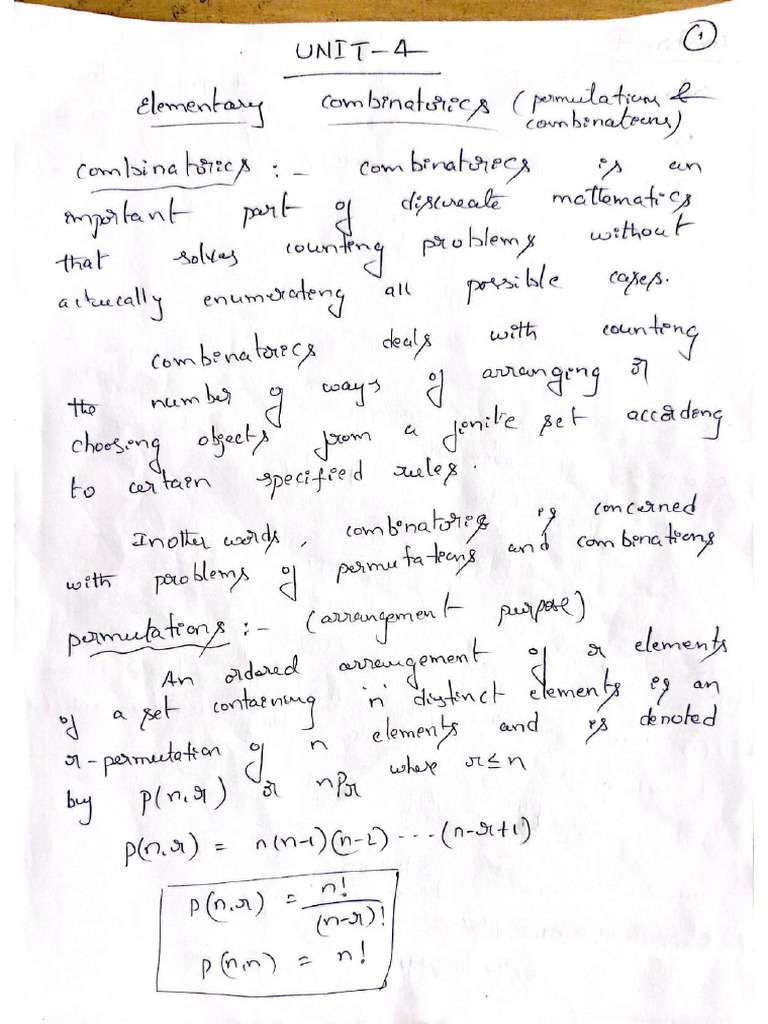 1
UNIT-4
Elementary combinatorics (permutations &
combinations)
combinatorics :- combinatorics is an
important part of discreate mattematics
that solves counting problems without
actucally enumerating all possible cases.
combinatorics deals with counting
the number of ways of arranging or
choosing objects from a finite set according
to certain specified rules.
Inotter words, combinatorics is concerned
with problems of permutations and combinations
permutations :- (arrangement purpose)
An ordered arrangement of r elements
of a set containing 'n' distinct elements is an
r-permutation of n elements and is denoted
by p(n,r) or nPr where r≤n
p(n,r) = n(n-1)(n-2) --- (n-r+1)
p(n,r) = n!/(n-r)!
p(n,n) = n!